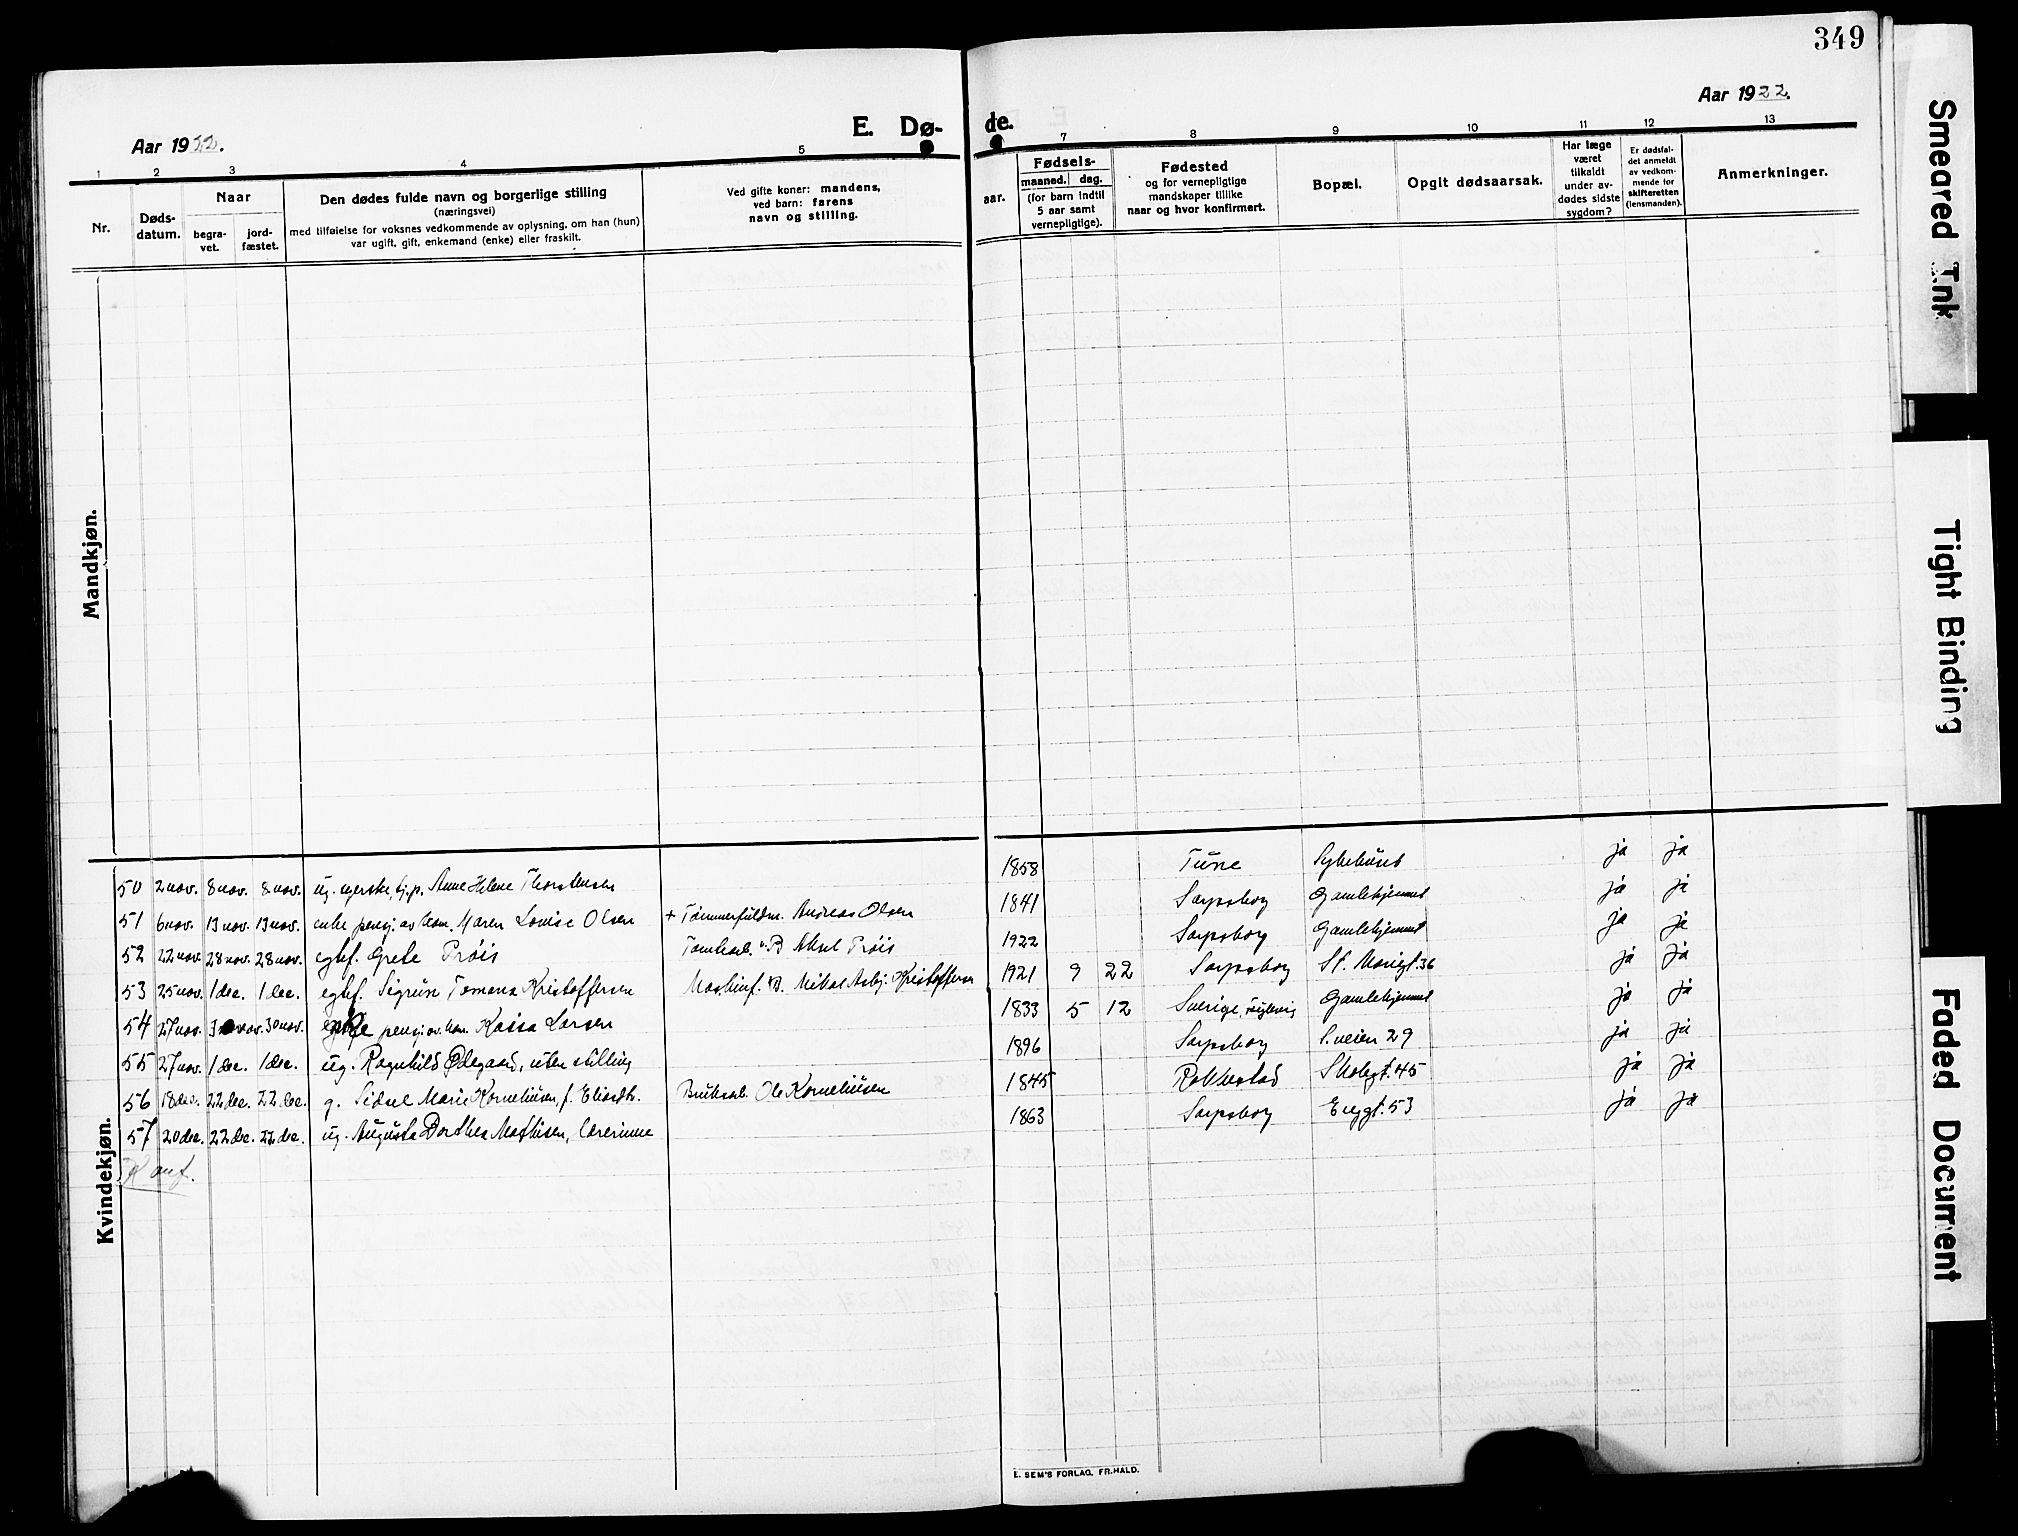 349
Aar 1922.
E. Dø-
de.
Aar 1922.
1 2 3 4 5
7 8 9 10 11 12 13
Nr.
Døds-
datum.
Naar
begra-
vet.
jord-
fæstet.
Den dødes fulde navn og borgerlige stilling
(næringsvei)
med tilføielse for voksnes vedkommende av oplysning, om han (hun)
var ugift, gift, enkemand (enke) eller fraskilt.
Ved gifte koner: mandens,
ved barn: farens
navn og stilling.
aar.
Fødsels-
maaned. dag.
(for barn indtil
5 aar samt
vernepligtige).
Fødested
og for vernepligtige
mandskaper tillike
naar og hvor konfirmert.
Bopæl.
Opgit dødsaarsak.
Har læge
været
tilkaldt
under av-
dødes sidste
sygdom?
Er dødsfal-
det anmeldt
av vedkom-
mende for
skifteretten
(lensmanden).
Anmerkninger.
Mandkjøn.
Kvindekjøn.
50 2 nov. 8 nov. 8 nov. ug. Anne Helene Thorstensen 1858 Tune Sykehuset ja ja
51 6 nov. 13 nov. 13 nov. enke pensj. av kom. Maren Lovise Olsen + Tømmerfuldm. Andreas Olsen 1841 Sarpsborg Gamlehjemmet ja ja
52 22 nov. 28 nov. 28 nov. egtf. Grete Prøis Aksel Prøis 1922 Sarpsborg Gamlehjemmet ja ja
53 25 nov. 1 dec. 1 dec. egtf. Sigrun Tomena Kristoffersen Maskinf. Mikal Asbj. Kristoffersen 1921 9 22 Sarpsborg St. Mariegt. 36 ja ja
54 27 nov. 30 nov. 30 nov. enke pensj. av kom. Kaisa Larsen 1833 5 12 Sverige, Gamlehjemmet ja ja
55 27 nov. 1 dec. 1 dec. ug. Ragnhild Ødegaard, uten stilling 1896 Sarpsborg S.veien 29 ja ja
56 18 dec. 22 dec. 22 dec. g. Sidsel Marie Korneliusen, f. Eliasdtr. Bruksarb. Ole Korneliusen 1845 Rakkestad Skolegt. 45 ja ja
57 20 dec. 22 dec. 22 dec. ug. Augusta Dorthea Mathisen, lærerinne 1863 Sarpsborg Enggt. 53 ja ja
Konf.
E. SEM'S FORLAG, FR.HALD.
Smeared Ink
Tight Binding
Faded Document